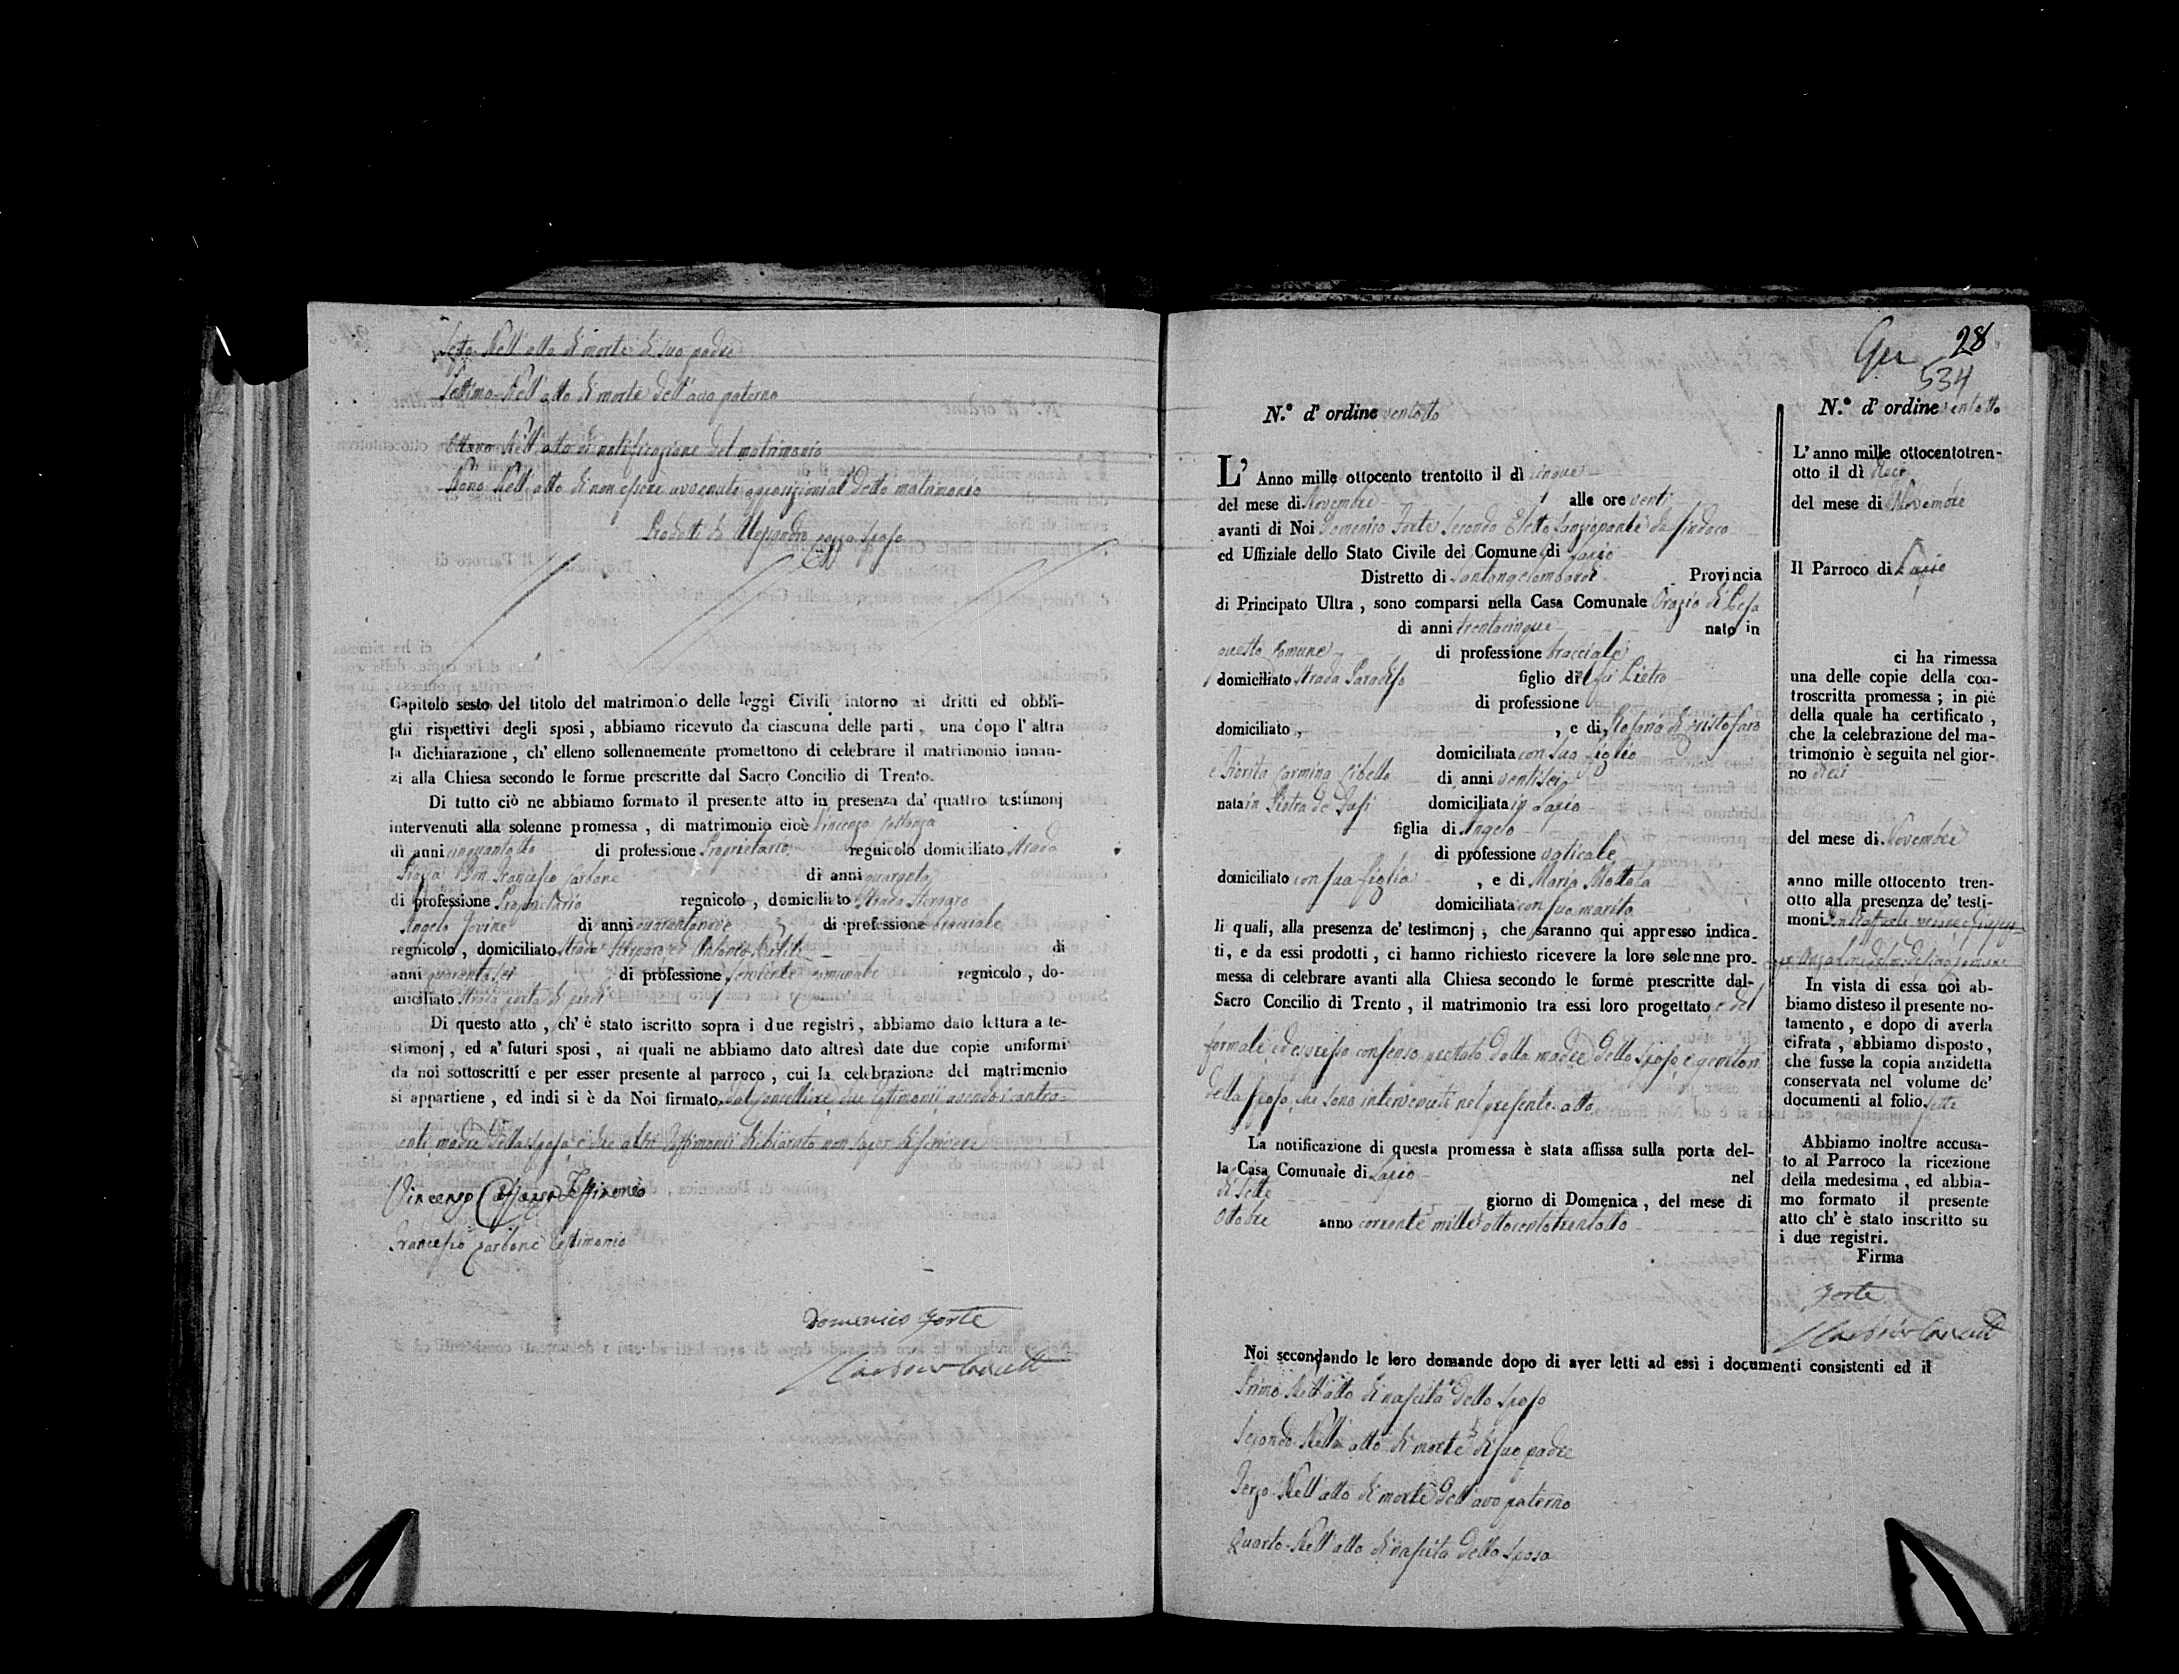 Sesto Nell'atto di morte di suo padre
Settimo Nell'atto di morte dell'avo paterno
Ottavo Nell'atto di notificazione del matrimonio
Nono Nell'atto di non essere avvenute opposizioni al detto matrimonio
Capitolo sesto del titolo del matrimonio delle leggi Civili intorno ai dritti ed obbli-
ghi rispettivi degli sposi, abbiamo ricevuto da ciascuna delle parti, una dopo l'altra
la dichiarazione, ch'elleno sollennemente promettono di celebrare il matrimonio innan-
zi alla Chiesa secondo le forme prescritte dal Sacro Concilio di Trento.
Di tutto ciò ne abbiamo formato il presente atto in presenza da' quattro testimonj
intervenuti alla solenne promessa, di matrimonio cioè Vincenzo
di anni cinquantotto di professione Proprietario regnicolo domiciliato Strada
Piazza Don Francesco Carbone di anni quaranta
di professione Proprietario regnicolo, domiciliato Strada
Angelo Iovine di anni quarantanove di professione bracciale
regnicolo, domiciliato Strada Antonio di
anni quarantasei di professione serviente comunale regnicolo, do-
miciliato Strada porta di piedi
Di questo atto, ch'è stato iscritto sopra i due registri, abbiamo dato lettura a te-
stimonj, ed a' futuri sposi, ai quali ne abbiamo dato altresì date due copie uniformi
da noi sottoscritti e per esser presente al parroco, cui la celebrazione del matrimonio
si appartiene, ed indi si è da Noi firmato, dal Cancelliere, due testimonii avendo i contra-
enti, madre della sposa, e due altri testimonii dichiarato non saper di scrivere
Vincenzo Testimonio
Francesco Carbone testimonio
Domenico Forte
28
534
N.° d'ordine ventotto
L'Anno mille ottocento trentotto il dì cinque
del mese di Novembre alle ore venti
avanti di Noi Domenico Forte Secondo Eletto funzionante da Sindaco
ed Uffiziale dello Stato Civile del Comune di Lacio
Distretto di Santangelombardi Provincia
di Principato Ultra, sono comparsi nella Casa Comunale Orazio di Cesa
di anni trentacinque nato in
questo Comune di professione bracciale
domiciliato Strada Paradiso figlio di fu Pietro
di professione
domiciliato, , e di Stefana di Cristofaro
domiciliata con suo figlio
e Fiorita Carmina Cibello di anni ventisei
nata in Pietra de Fusi domiciliata in Lacio
figlia di Angelo
di professione vaticale
domiciliato con sua figlia , e di Maria Mottola
domiciliata con suo marito
li quali, alla presenza de' testimonj, che saranno qui appresso indica-
ti, e da essi prodotti, ci hanno richiesto ricevere la loro solenne pro-
messa di celebrare avanti alla Chiesa secondo le forme prescritte dal-
Sacro Concilio di Trento, il matrimonio tra essi loro progettato, e del
formale ed espresso consenso prestato dalla madre dello sposo e genitori
della sposa, che sono intervenuti nel presente atto
La notificazione di questa promessa è stata affissa sulla porta del-
la Casa Comunale di Lacio nel
di sette giorno di Domenica, del mese di
Ottobre anno corrente mille ottocentotrentotto
Noi secondando le loro domande dopo di aver letti ad essi i documenti consistenti ed il
Primo Nell'atto di nascita dello sposo
Secondo Nell'atto di morte di suo padre
Terzo Nell'atto di morte dell'avo paterno
Quarto Nell'atto di nascita della sposa
N.° d'ordine ventotto
L'anno mille ottocentotren-
otto il dì dieci
del mese di Novembre
Il Parroco di Lacio
ci ha rimessa
una delle copie della con-
troscritta promessa; in piè
della quale ha certificato,
che la celebrazione del ma-
trimonio è seguita nel gior-
no dieci
del mese di Novembre
anno mille ottocento tren-
otto alla presenza de' testi-
moni
In vista di essa noi ab-
biamo disteso il presente no-
tamento, e dopo di averla
cifrata, abbiamo disposto,
che fusse la copia anzidetta
conservata nel volume de'
documenti al folio sette
Abbiamo inoltre accusa-
to al Parroco la ricezione
della medesima, ed abbia-
mo formato il presente
atto ch'è stato inscritto su
i due registri.
Firma
Forte